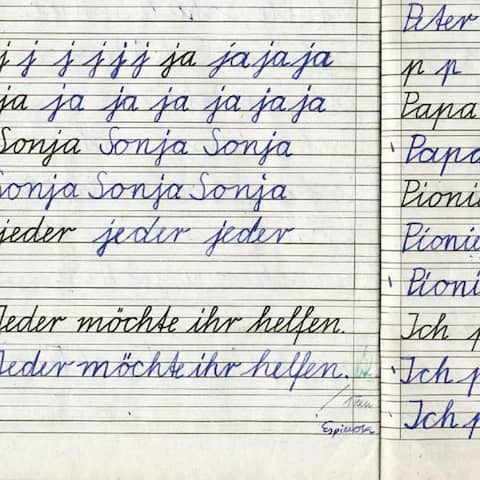 j j j j j j ja ja ja ja
ja ja ja ja ja ja ja
Sonja Sonja Sonja
Sonja Sonja Sonja
jeder jeder jeder
Jeder möchte ihr helfen.
Jeder möchte ihr helfen.
Espinosa
Peter
p p
Papa
Papa
Pionie
Pionie
Pioni
Ich p
Ich p
Ich p